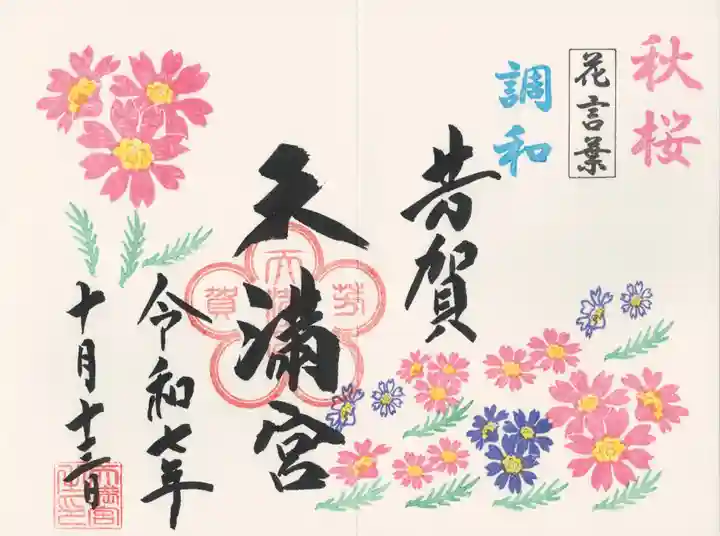 秋桜
花言葉
調和
芳賀
天満宮
令和七年
十月十三日